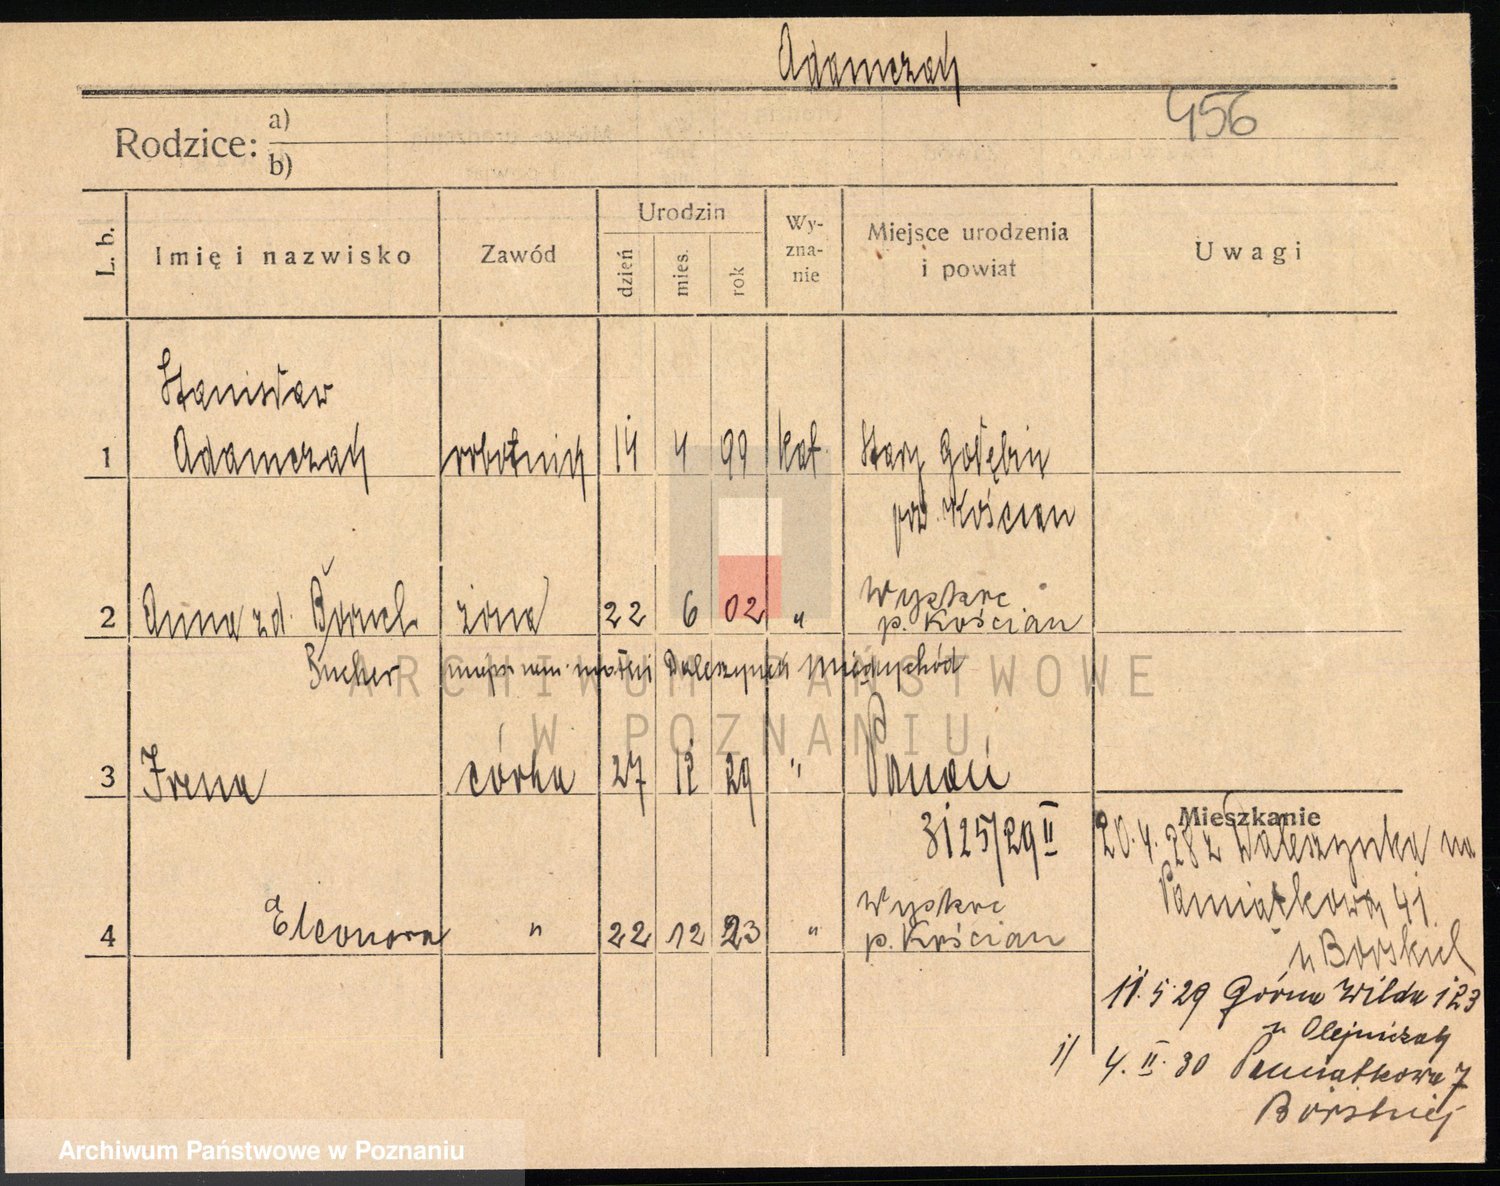 Adamczak
456
Rodzice: a)
b)
L. b.
Imię i nazwisko
Zawód
Urodzin
dzień
mies.
rok
Wy-
zna-
nie
Miejsce urodzenia
i powiat
Uwagi
Stanisław
1 Adamczak robotnik 14 4 99 kat. Stary Gołębin
pow. Kościan
2 Anna zd. żona 22 6 02 "
p. Kościan
3 Irena córka 27 12 29 "
3125/29 II
4 Eleonora " 22 12 23 "
p. Kościan
Mieszkanie
20.4.28 z na
Pamiątkowa 41
u
11.5.29 Górna Wilda 123
u Olejniczak
1/ 4. II. 30 Pamiątkowa 7
ARCHIWUM PAŃSTWOWE
W POZNANIU
Archiwum Państwowe w Poznaniu